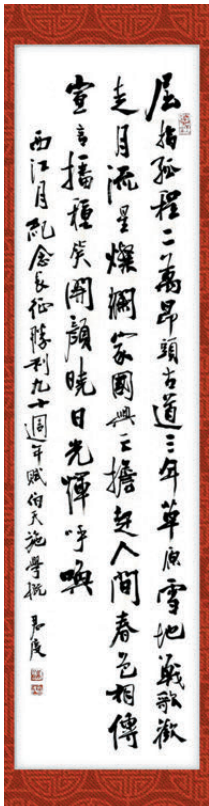 屈指孤程二萬昂頭古道三年草原雪地戰歌歡
走月流星燦爛家國興亡擔起人間春色相傳
宣言播種笑開顏曉日光輝呼喚
西江月紀念長征勝利九十週年賦伯天施學概